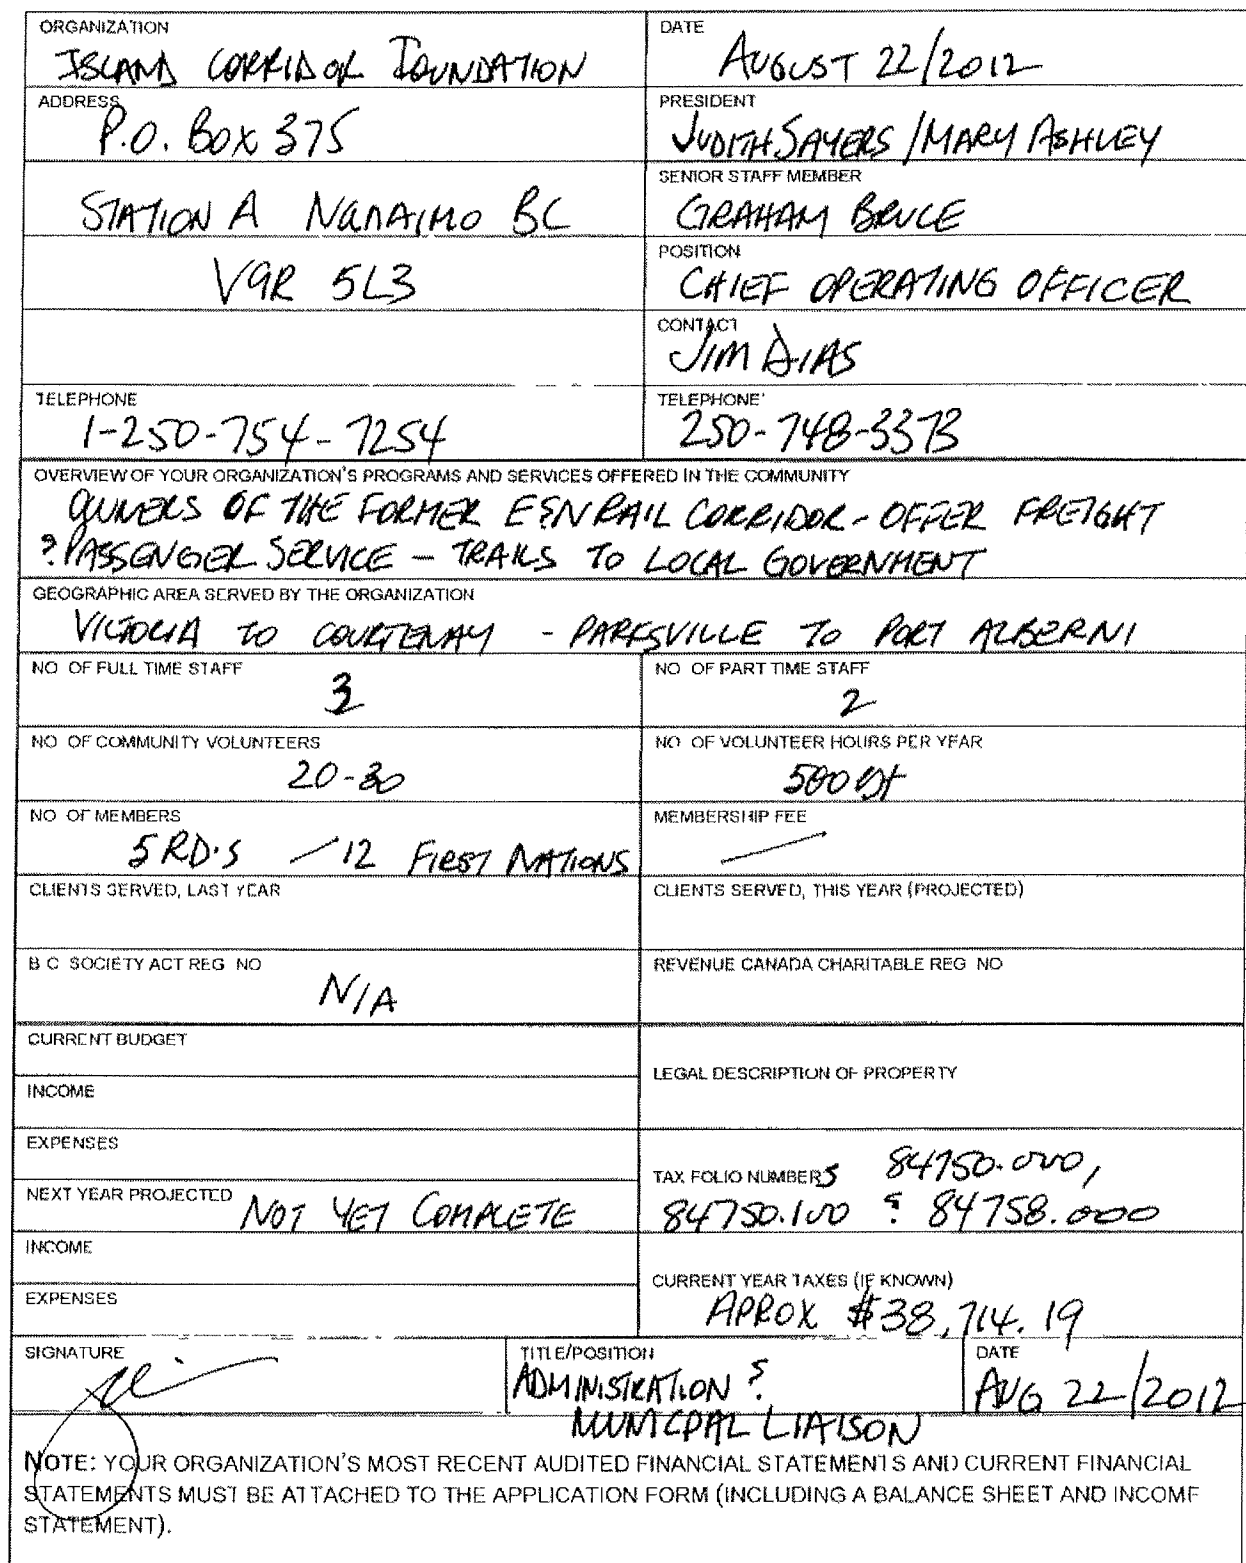 ORGANIZATION
ISLAND CORRIDOR FOUNDATION
DATE
AUGUST 22/2012
ADDRESS
P.O. BOX 375
PRESIDENT
JUDITH SAYERS / MARY ASHLEY
STATION A NANAIMO BC
SENIOR STAFF MEMBER
GRAHAM BRUCE
V9R 5L3
POSITION
CHIEF OPERATING OFFICER
CONTACT
JIM DIAS
TELEPHONE
1-250-754-7254
TELEPHONE
250-748-3373
OVERVIEW OF YOUR ORGANIZATION'S PROGRAMS AND SERVICES OFFERED IN THE COMMUNITY
OWNERS OF THE FORMER E&N RAIL CORRIDOR - OFFER FREIGHT
& PASSENGER SERVICE - TRAILS TO LOCAL GOVERNMENT
GEOGRAPHIC AREA SERVED BY THE ORGANIZATION
VICTORIA TO COURTENAY - PARKSVILLE TO PORT ALBERNI
NO OF FULL TIME STAFF
NO OF PART TIME STAFF
2
NO OF COMMUNITY VOLUNTEERS
20-30
NO OF VOLUNTEER HOURS PER YEAR
500
NO OF MEMBERS
5 RD'S / 12 FIRST NATIONS
MEMBERSHIP FEE
CLIENTS SERVED, LAST YEAR
CLIENTS SERVED, THIS YEAR (PROJECTED)
B C SOCIETY ACT REG NO
N/A
REVENUE CANADA CHARITABLE REG NO
CURRENT BUDGET
LEGAL DESCRIPTION OF PROPERTY
INCOME
EXPENSES
TAX FOLIO NUMBERS 84750.000,
84750.100 & 84758.000
NEXT YEAR PROJECTED NOT YET COMPLETE
INCOME
CURRENT YEAR TAXES (IF KNOWN)
APROX $38,714.19
EXPENSES
SIGNATURE
TITLE/POSITION
ADMINISTRATION &
MUNICPAL LIAISON
DATE
AUG 22/2012
NOTE: YOUR ORGANIZATION'S MOST RECENT AUDITED FINANCIAL STATEMENTS AND CURRENT FINANCIAL
STATEMENTS MUST BE ATTACHED TO THE APPLICATION FORM (INCLUDING A BALANCE SHEET AND INCOME
STATEMENT).